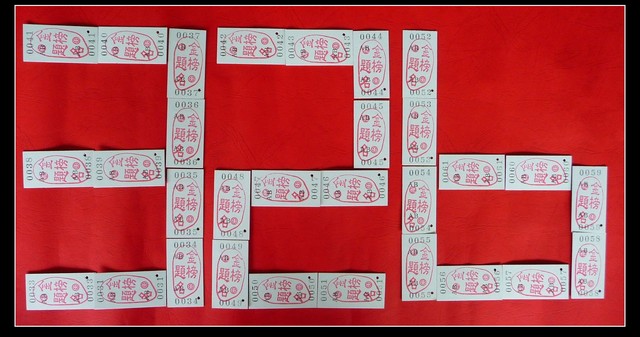 0041 金榜題名 0041
0040 金榜題名 0040
0037 金榜題名 0037
0042 金榜題名
0043 金榜題名
0044 金榜題名 0044
0052 金榜題名 0052
0036 金榜題名 0036
0045 金榜題名
0053 金榜題名
0038 金榜題名
0039 金榜題名
0035 金榜題名
0048 金榜題名 0048
0047 金榜題名
0046 金榜題名 0046
0054 金榜題名
0061 金榜題名
金榜題名
0059 金榜題名
0034 金榜題名 0034
0049 金榜題名
0055 金榜題名
0058 金榜題名
0033 金榜題名 0033
金榜題名
0050 金榜題名
0051 金榜題名
0056 金榜題名
0057 金榜題名